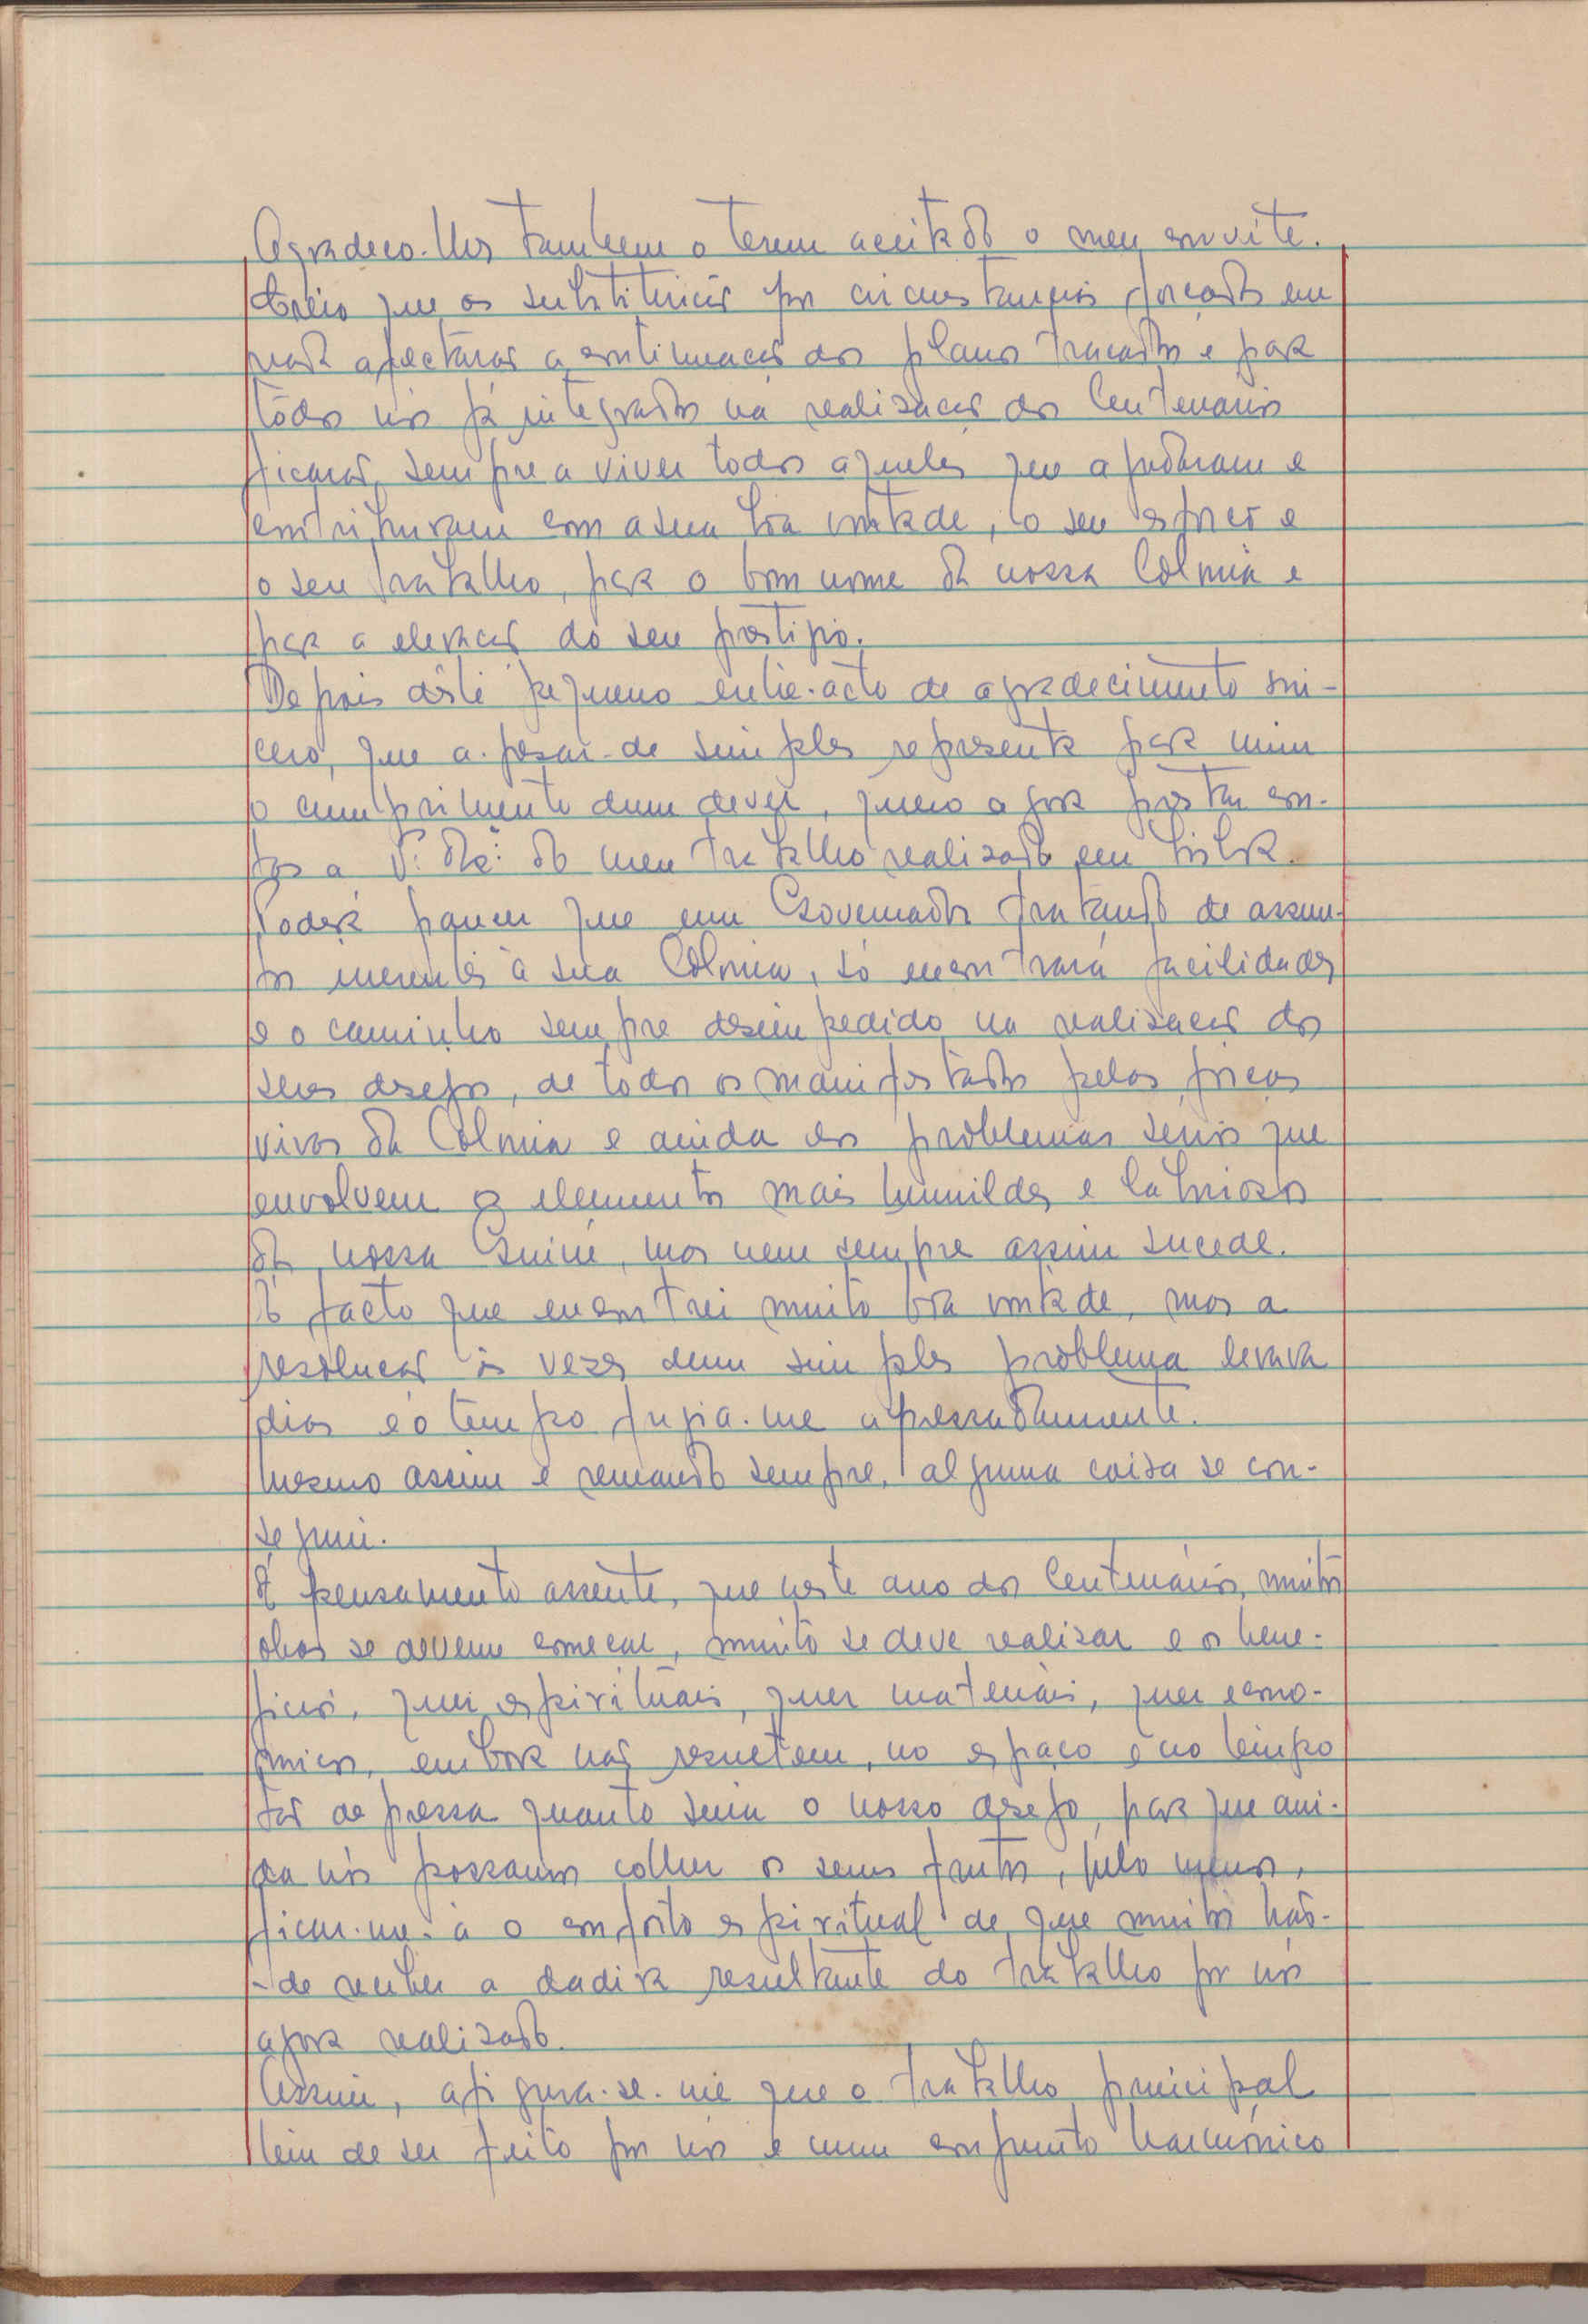 Agradeço-lhes tambem o terem aceitado o meu convite.
Creio que as substituições por circunstancias forçadas em
nada afectarão a continuação dos planos traçados e para
todos nós já integrados na realização dos Centenários
ficarão sempre a viver todos aqueles que ajudaram e
contribuiram com a sua boa vontade, o seu esforço e
o seu trabalho, para o bom nome da nossa Colónia e
para a elevação do seu prestigio.
Depois dêste pequeno entre-acto de agradecimento sin-
cero, que a-pesar-de simples representa para mim
o cumprimento dum dever, quero agora prestar con-
tas a V. Exªs. do meu trabalho realizado em Lisboa.
Poderá parecer que um Governador tratando de assun-
tos inerentes à sua Colónia, só encontrará facilidades
e o caminho sempre desimpedido na realização dos
seus desejos, de todos os manifestados pelas fôrças
vivas da Colónia e ainda dos problemas sérios que
envolvem os elementos mais humildes e laboriosos
da nossa Guiné, mas nem sempre assim sucede.
É facto que encontrei muito boa vontade, mas a
resolução às vezes dum simples problema levava
dias e o tempo fugia-me apressadamente.
Mesmo assim e remando sempre, alguma coisa se con-
seguiu.
É pensamento assente, que neste ano dos Centenários, muitas
obras se devem começar, muito se deve realizar e os bene-
ficios, quer espirituais, quer materiais, quer econo-
micos, embora não resultem, no espaço e no tempo
tão depressa quanto seria o nosso desejo, para que ain-
da nós possamos colher os seus frutos, pelo menos,
ficar-me-á o conforto espiritual de que muitos hão-
-de receber a dadiva resultante do trabalho por nós
agora realizado.
Assim, afigura-se-me que o trabalho principal
tem de ser feito por nós e num conjunto harmónico